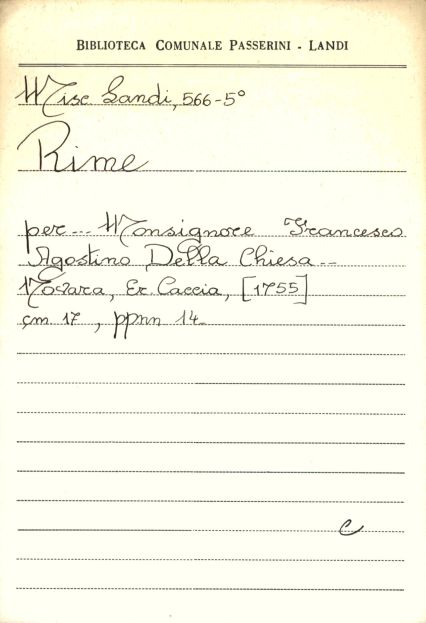 BIBLIOTECA COMUNALE PASSERINI - LANDI
Misc Landi, 566-5°
Rime
per ... Monsignore Francesco
Agostino Della Chiesa ...
Novara, Er. Caccia, [1755]
cm 17, ppnn 14
c